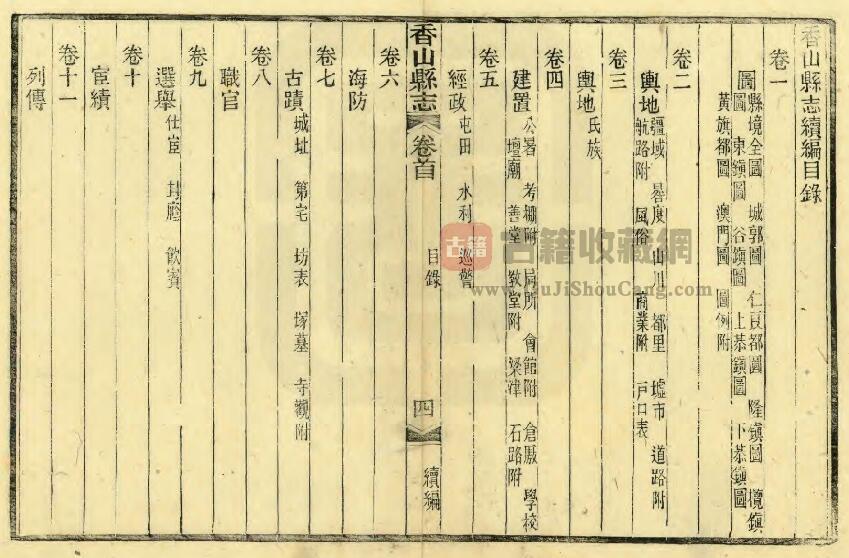 香山縣志續編目錄
卷一
圖 縣境全圖 城郭圖 仁良都圖 隆鎮圖 欖鎮
圖 東鎮圖 谷鎮圖 上恭鎮圖 下恭鎮圖
黃旗都圖 澳門圖 圖例附
卷二
輿地 疆域 晷度 山川 都里 墟市 道路附
航路附 風俗 商業附 戶口表
卷三
輿地 氏族
卷四
建置 公署 考棚附 局所 會館附 倉廒 學校
壇廟 善堂 教堂附 梁津 石路附
卷五
經政 屯田 水利 巡警
香山縣志 卷首 目錄 四 續編
卷六
海防
卷七
古蹟 城址 第宅 坊表 塚墓 寺觀附
卷八
職官
卷九
選舉 仕宦 封廕 飲賓
卷十
宦績
卷十一
列傳
古籍 古籍收藏網
www.GuJiShouCang.com